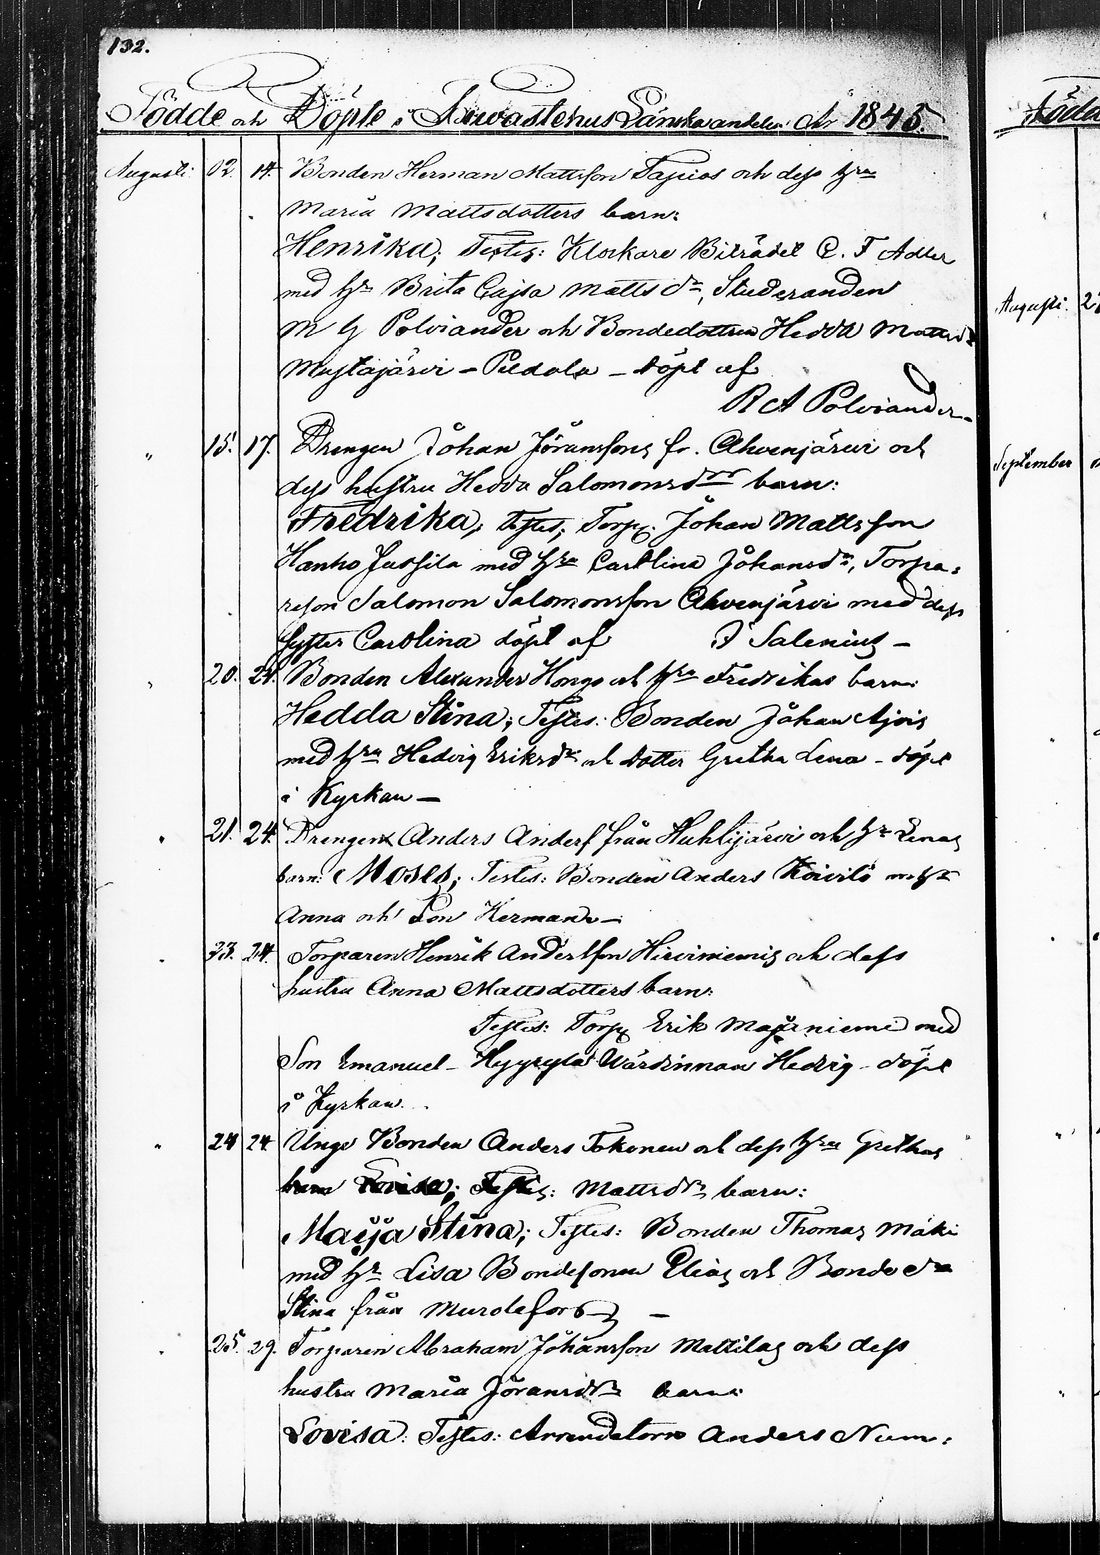 132.
Födde och Döpte i Tawastehus Länska andelen År 1845.
Augusti. 02. 14. Bonden Herman Mattsson Tapios och dess hru
Maria Mattsdotters barn:
Henrika; Testes: Klockare Biträdet C. F Adler
med hr Brita Cajsa Matts dr, Studeranden
M G Polviander och Bondedottren Hedda Mattsd
Mustajärvi - Puldola - döpt af
R A Polviander
" 15. 17. Drengen Johan Jöranssons fr. Ahvenjärvi och
dess hustru Hedda Salomonsdrs barn:
Fredrika; Testes; Torp. Johan Mattsson
Hanho Jussila med hru Carolina Johansdr, Torpa=
reson Salomon Salomonsson Ahvenjärvi med dess
Syster Carolina döpt af J Salenius -
" 20. 24. Bonden Alexander Hongo och hru Fredrikas barn:
Hedda Stina; Testes: Bonden Johan Ajois
med hru Hedvig Eriksdr och dotter Gretha Lena - döpt
i Kyrkan -
" 21. 24. Drengen Anders Anderss från Huhlijärvi och hr Lenas
barn: Moses; Testes: Bonden Anders Koivisto m hr
Anna och Son Herman -
" 23. 24. Torparen Henrik Andersson Hirviniemis och dess
hustru Anna Mattsdotters barn:
Testes: Torp Erik Majaniemi med
Son Emanuel - Hyyrylä Wärdinnan Hedvig - döpt
i Kyrkan.
" 24 24. Unge Bonden Anders Tokonen och dess hru Grethas
Mattsdrs barn:
Maija Stina; Testes: Bonden Thomas Mäki
med hr Lisa Bondesonen Elias och Bonde dr
Stina från Murolefors -
" 25. 29. Torparen Abraham Johansson Mattilas och dess
hustru Maria Jöransdrs barn:
Lovisa: Testes: Arrendatorn Anders Num=
Födde
Augusti. 2
September